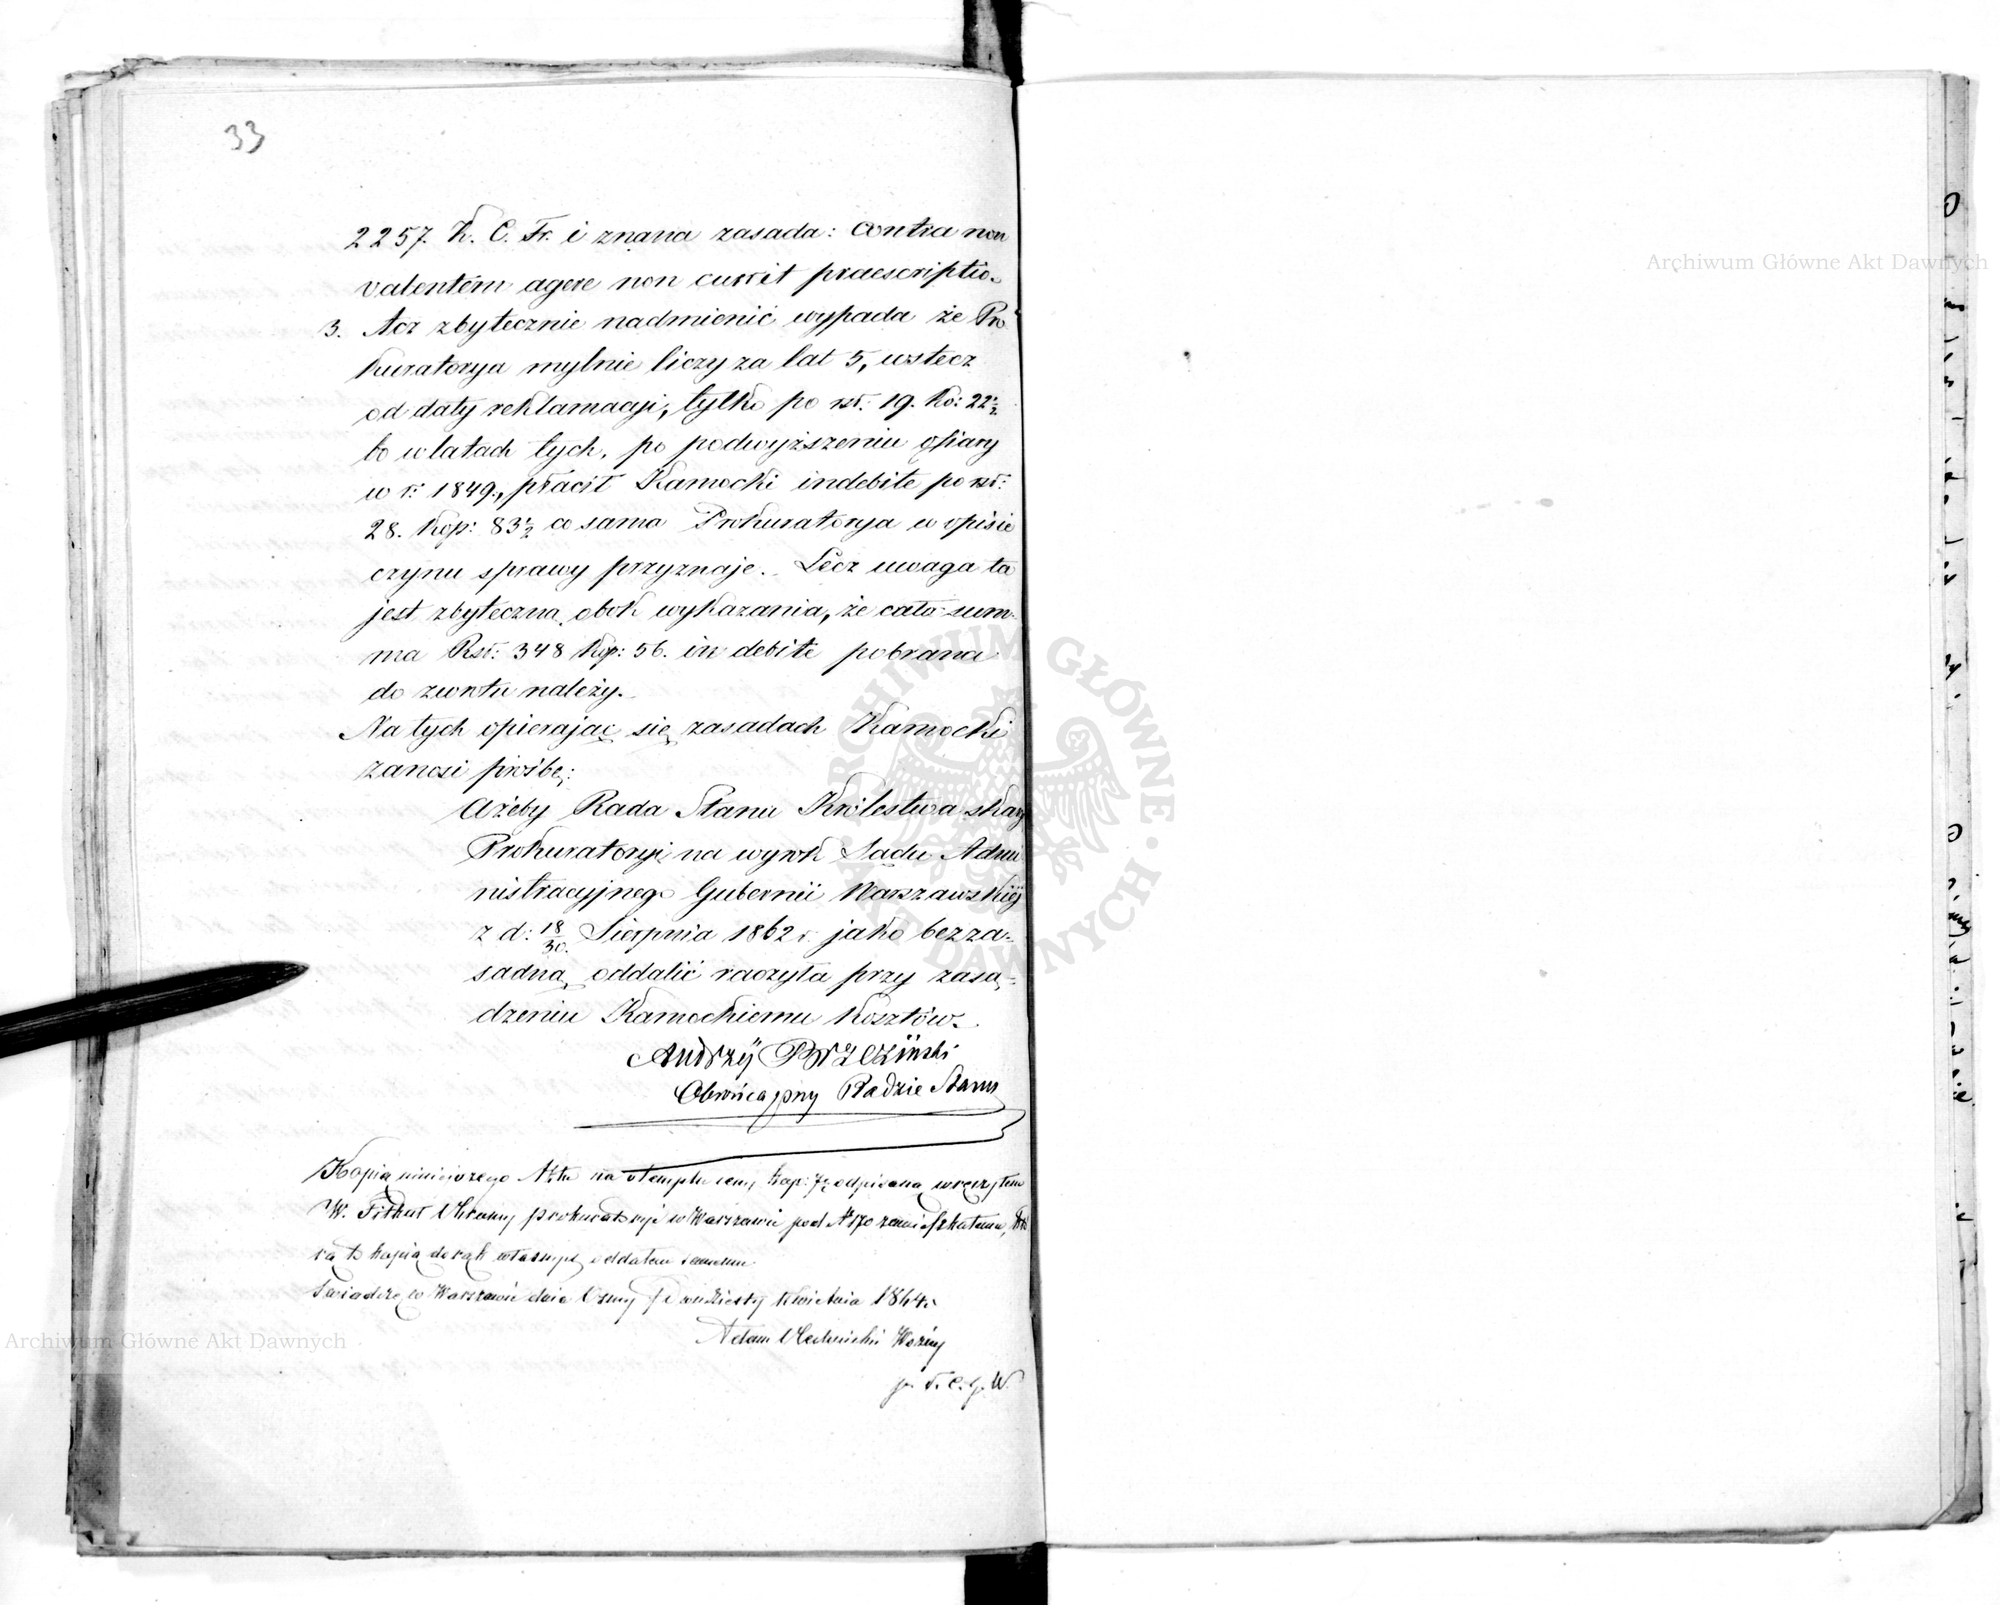 33
2257. K. C. Fr. i znana zasada: contra non
valentem agere non currit praescriptio.
3. Acz zbytecznie nadmienić wypada że Pro
kuratorya mylnie liczy za lat 5, wstecz
od daty reklamacyi, tylko po rsr: 19. Ko: 22½
bo w latach tych, po podwyższeniu ofiary
w r: 1849., płacił Kamocki indebite po rsr:
28. Kop: 83½ co sama Prokuratorya w opisie
czynu sprawy przyznaje. Lecz uwaga ta
jest zbyteczna obok wykazania, że cała sum-
ma Rsr: 348 Kop: 56. in debite pobrana
do zwrotu należy.
Na tych opierając się zasadach Kamocki
zanosi prośbę:
Ażeby Rada Stanu Królestwa skargę
Prokuratoryi na wyrok Sądu Admi
nistracyjnego Gubernii Warszawskiéj
z d: 18/30. Sierpnia 1862 r. jako bezza-
sadną, oddalić raczyła przy zasą-
dzeniu Kamockiemu Kosztów.
Andrzéj Brzeziński
Obrońca przy Radzie Stanu
Kopią niniejszego Aktu na stemplu ceny kop: 7½ odpisaną wręczyłem
W. Obrońcy prokuratoryi w Warszawie pod N 170 zamieszkałemu, któ
rą to kopią do rąk własnych oddałem
Świadczę w Warszawie dnia Ósmy / Dwudziesty Kwietnia 1864 r.
Adam Woźny
p. T. C. G. W.
Archiwum Główne Akt Dawnych
Archiwum Główne Akt Dawnych
ARCHIWUM GŁÓWNE AKT DAWNYCH